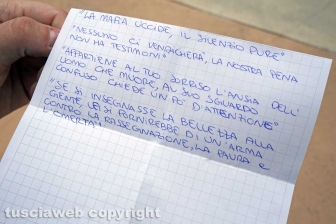 "LA MAFIA UCCIDE, IL SILENZIO PURE"
"NESSUNO CI VENDICHERÀ, LA NOSTRA PENA
NON HA TESTIMONI"
"APPARTIENE AL TUO SORRISO L'ANSIA DELL'
UOMO CHE MUORE, AL SUO SGUARDO
CONFUSO CHIEDE UN PO' D'ATTENZIONE"
"SE SI INSEGNASSE LA BELLEZZA ALLA
GENTE LE SI FORNIREBBE DI UN'ARMA
CONTRO LA RASSEGNAZIONE, LA PAURA E
L'OMERTÀ"
tusciaweb copyright ©